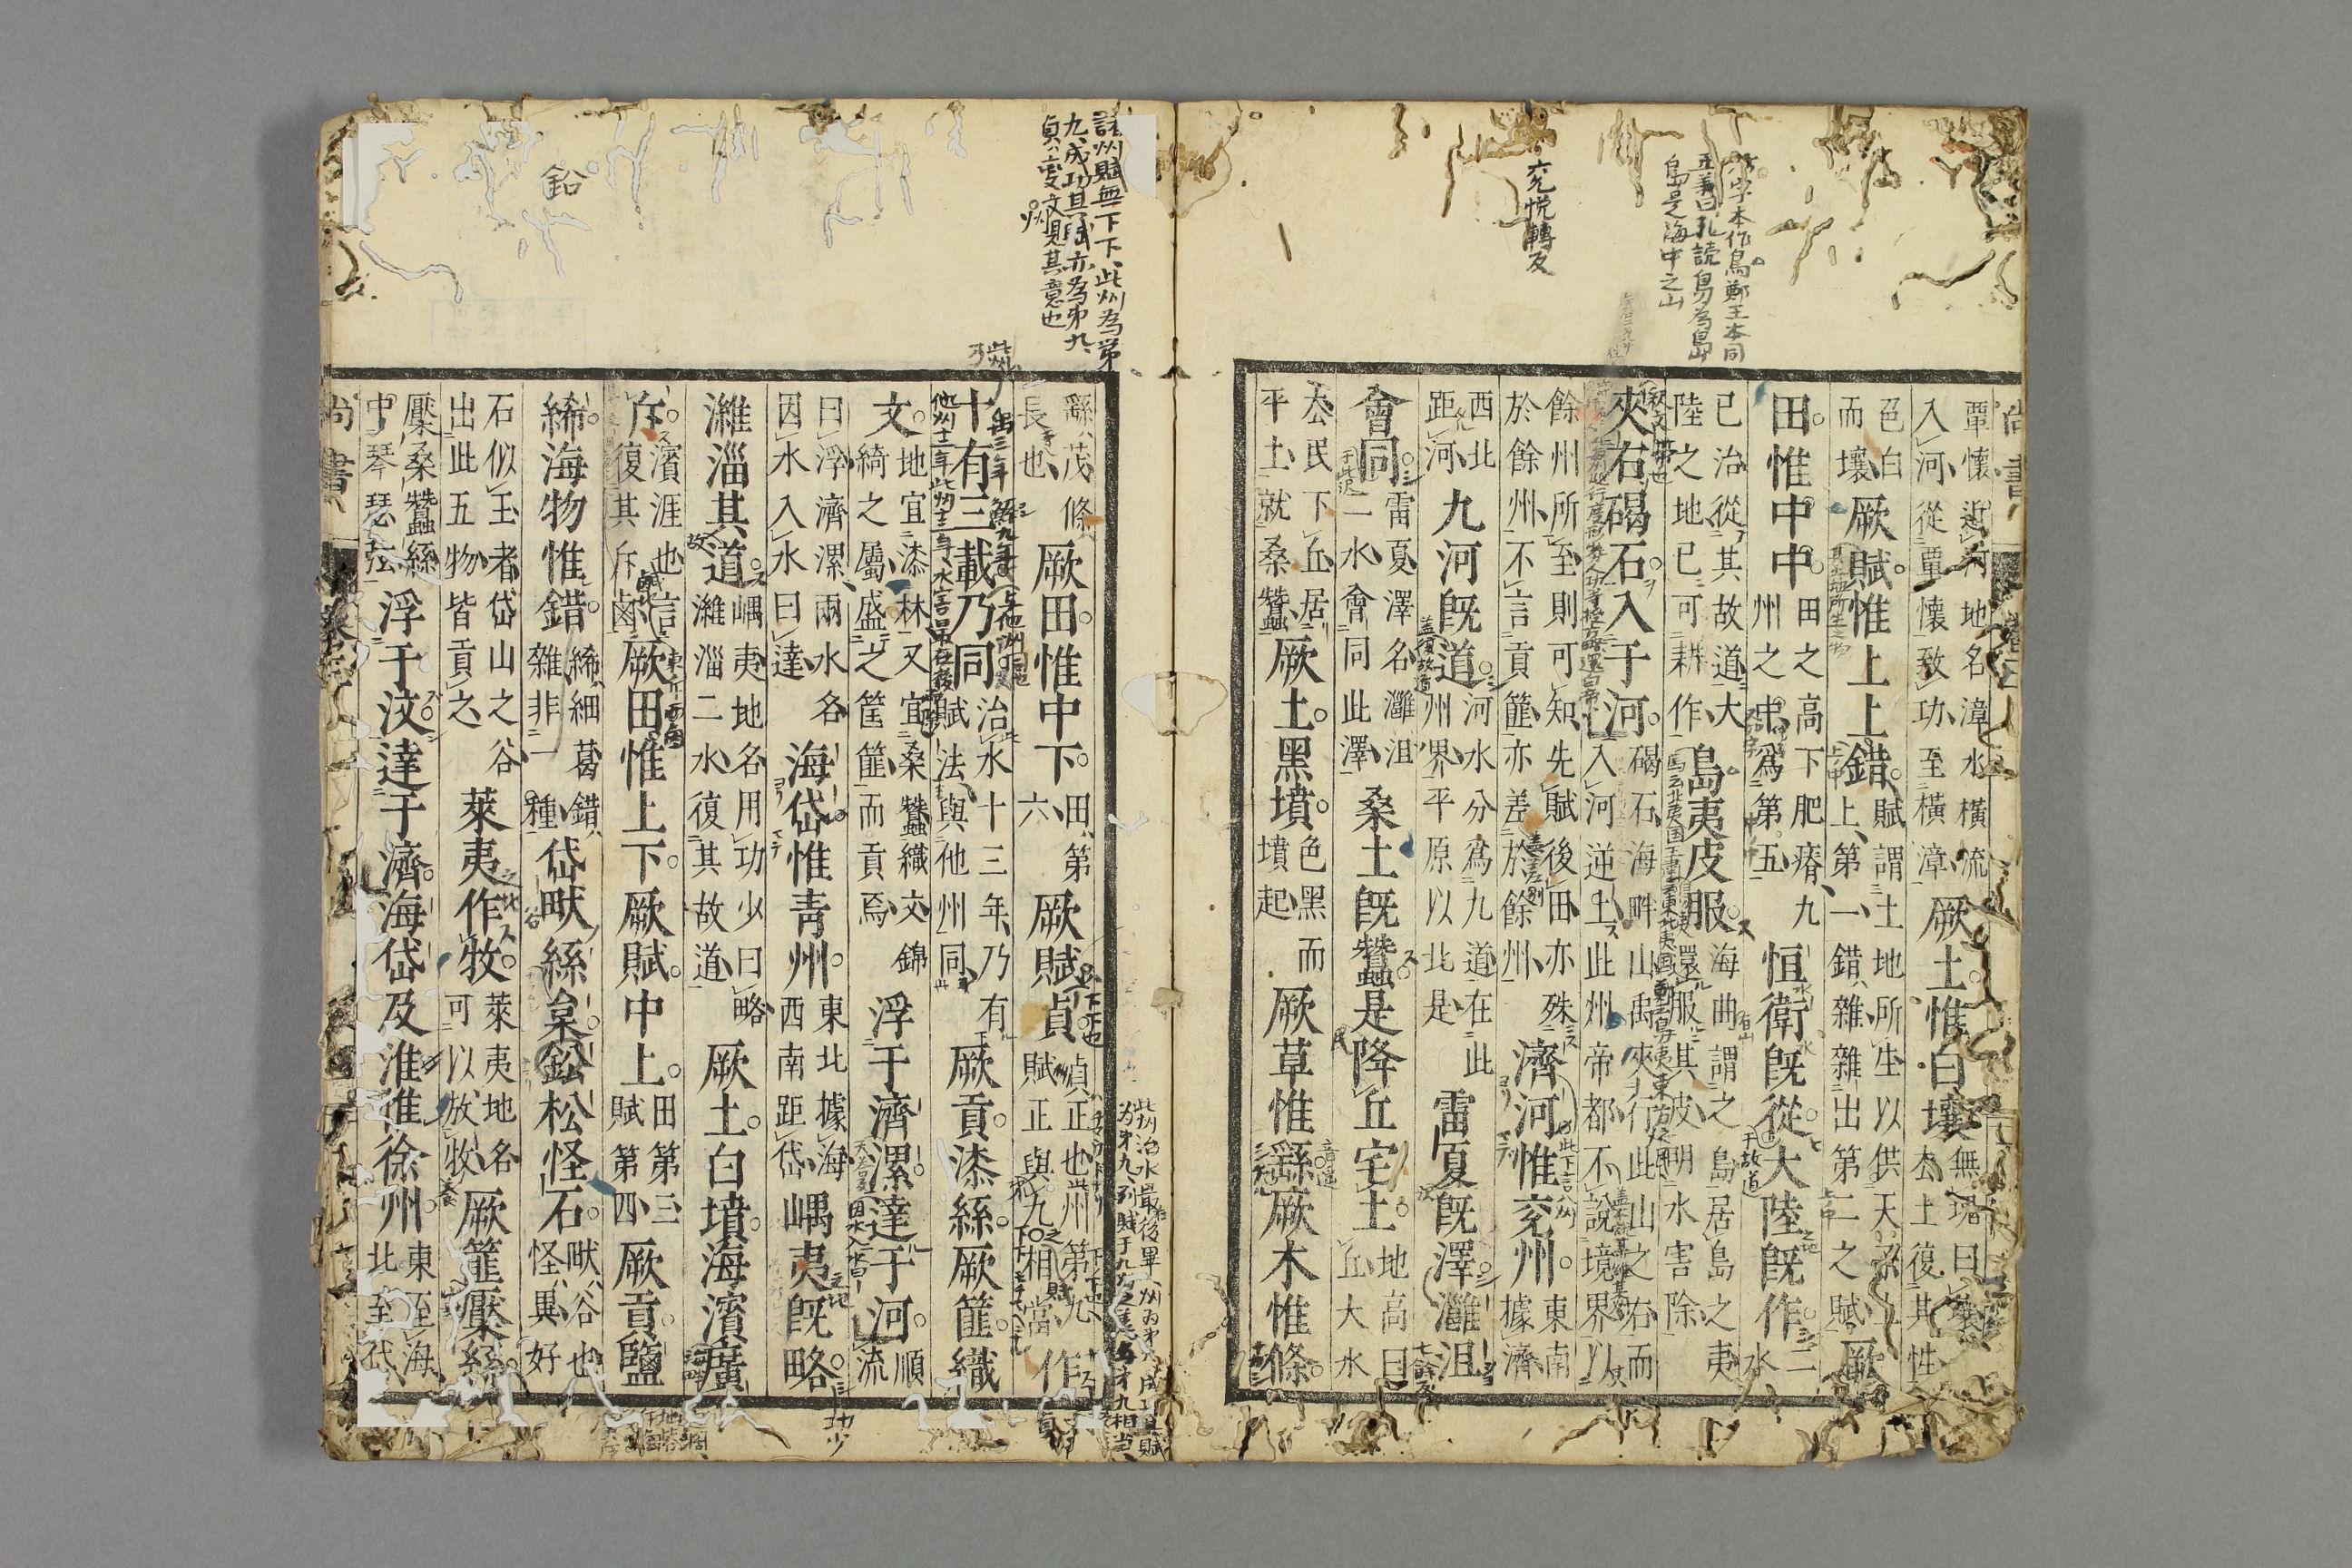 六字本作鳥鄭王本同
正義曰孔読鳥为島
島是海中之山
兖悦轉反
尚書
覃懷近河地名漳水橫流入河從覃懷致功至橫漳厥土惟白壤無塊曰壤去土復其性
色白而壤厥賦惟上上錯賦謂土地所生以供天子上上第一錯雜雜出第二之賦厥
田惟中中田之高下肥瘠九州之中爲第五恒衛既從大陸既作二水
已治從其故道大陸之地已可耕作島夷皮服海曲謂之島居島之夷還服其皮明水害除
夾右碣石入于河碣石海畔山禹夾行此山之右而入河逆上此州帝都不說境界以
餘州所至則可知先賦後田亦殊於餘州不言貢篚亦差於餘州濟河惟兖州東南據濟
西北距河九河既道河水分爲九道在此州界平原以北是雷夏既澤灉沮
會同雷夏澤名灉沮二水會同此澤桑土既蠶是降丘宅土地高曰丘大水
去民下丘居平土就桑蠶厥土黑墳色黑而墳起厥草惟繇厥木惟條
諸州賦無下下、此州為第
九、成功其賦亦為第九、
貞、變文見其意也
鉛
繇茂條長也厥田惟中下田第六厥賦貞貞正也州第九賦正與九相當作
十有三載乃同治水十三年乃有賦法與他州同厥貢漆絲厥篚織
文地宜漆林又宜桑蠶織文錦綺之屬盛之筐篚而貢焉浮于濟漯達于河順流
曰浮濟漯兩水名因水入水曰達海岱惟青州東北據海西南距岱嵎夷既略
濰淄其道嵎夷地名用功少曰略濰淄二水復其故道厥土白墳海濱廣
斥濱涯也言復其斥鹵厥田惟上下厥賦中上田第三賦第四厥貢鹽
絺海物惟錯絺細葛錯雜非一種岱畎絲枲鈆松怪石畎谷也怪異好
石似玉者岱山之谷出此五物皆貢之萊夷作牧萊夷地名可以放牧厥篚檿絲
檿桑蠶絲中琴瑟弦浮于汶達于濟海岱及淮惟徐州東至海北至岱
尚書